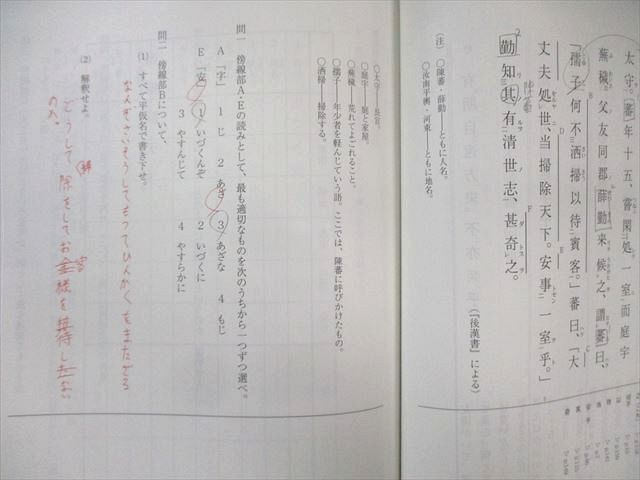 太守。蕃年十五、嘗閑処一室、而庭宇
蕪穢。父友同郡薛勤来候之、謂蕃曰、
「孺子何不洒掃以待賓客。」蕃曰、「大
丈夫処世、当掃除天下。安事一室乎。」
勤知其有清世志、甚奇之。
（『後漢書』による）
（注）○陳蕃・薛勤――ともに人名。
○汝南平輿・河東――ともに地名。
○太守――長官。
○庭宇――庭と家屋。
○蕪穢――荒れてよごれること。
○孺子――年少者を軽んじていう語。ここでは、陳蕃に呼びかけたもの。
○洒掃――掃除する。
問一　傍線部A・Eの読みとして、最も適切なものを次のうちから一つずつ選べ。
A「字」　1 じ　2 あざ　3 あざな　4 もじ
E「安」　1 いづくんぞ　2 いづくに
3 やすんじて　4 やすらかに
問二　傍線部Bについて、
（1）すべて平仮名で書き下せ。
（2）解釈せよ。
どうして掃除をしてお客様を接待しない
のか。